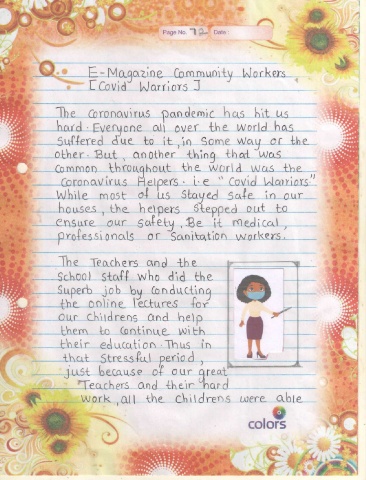 Page No. 72 Date:
E-Magazine Community Workers
[Covid Warriors]
The coronavirus pandemic has hit us
hard. Everyone all over the world has
suffered due to it, in some way or the
other. But, another thing that was
common throughout the world was the
Coronavirus Helpers. i.e "Covid Warriors"
While most of us stayed safe in our
houses, the helpers stepped out to
ensure our safety, Be it medical,
professionals or Sanitation workers.
The Teachers and the
School Staff who did the
Superb job by conducting
the online lectures for
our childrens and help
them to continue with
their education. Thus in
that stressful period,
just because of our great
Teachers and their hard
work, all the childrens were able
colors